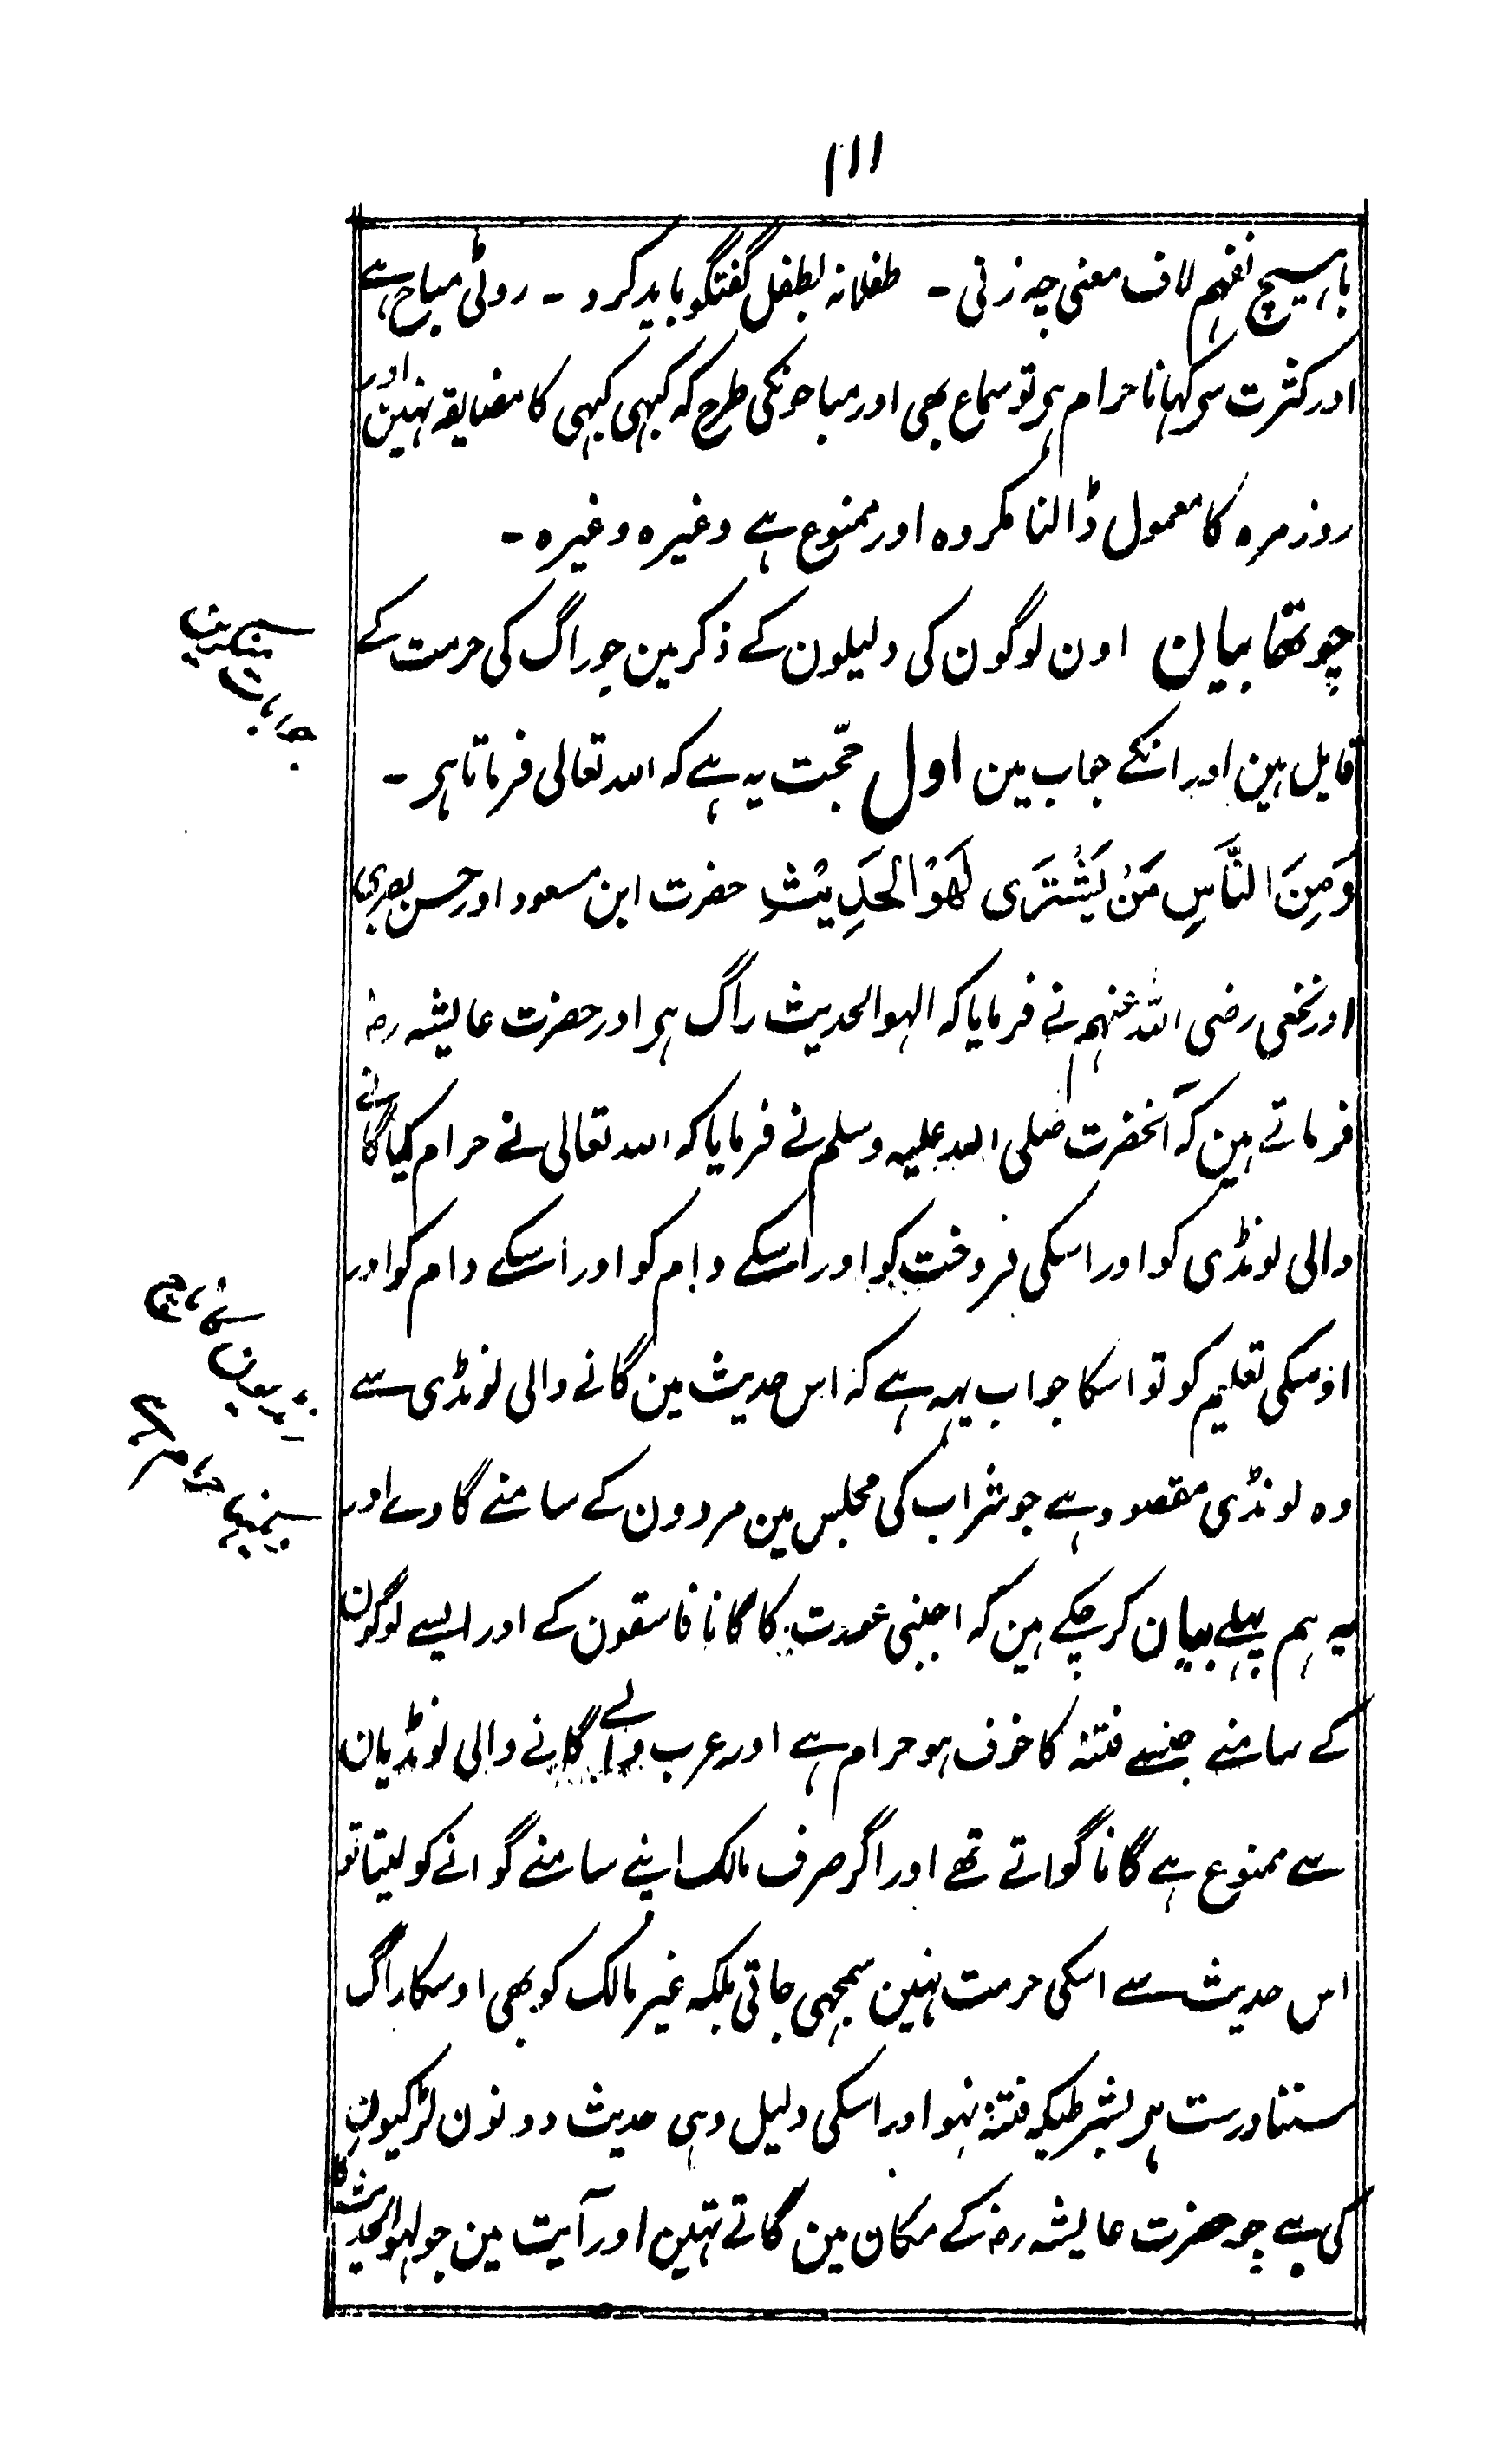 ١١١
باہیچ نفہم لاف معنی چہ زنی ۔ طفلانہ بطفل گفتگو باید کرد ۔ روٹی مباح ہے
اور کثرت سی کہانا حرام ہی تو سماع بھی اور مباحونکی طرح کہ کبہی کبہی کا مضایقہ نہین اور
روز مرہ کا معمول ڈالنا مکروہ اور ممنوع ہے وغیرہ وغیرہ ۔
چوتھا بیان اون لوگون کی دلیلون کے ذکر مین جو راگ کی حرمت کے
قایل ہین اور انکے جواب مین اول حجّت یہ ہے کہ اللہ تعالی فرماتا ہی ۔
وَمِنَ النَّاسِ مَنْ یَشْتَرَی لَھْوَ الْحَدِیْثِ حضرت ابن مسعود اور حسن بصری
اور نخعی رضی اللہ عنہم نے فرمایا کہ الہو الحدیث راگ ہی اور حضرت عایشہ رضہ
فرماتے ہین کہ آنحضرت صلی اللہ علیہ وسلم نے فرمایا کہ اللہ تعالی نے حرام کیا گانے
والی لونڈی کو اور اسکی فروخت کو اور اسکے دام کو اور اسکے دام کو اور
اوسکی تعلیم کو تو اسکا جواب یہہ ہے کہ اس حدیث مین گانے والی لونڈی سے
وہ لونڈی مقصود ہے جو شراب کی مجلس مین مردون کے سامنے گاوے اور
یہ ہم پہلے بیان کر چکے ہین کہ اجنبی عورت کا گانا فاسقون کے اور ایسے لوگون
کے سامنے جنسے فتنہ کا خوف ہو حرام ہے اور عرب والے گانے والی لونڈیان
سے ممنوع ہے گانا گواتے تھے اور اگر صرف مالک اپنے سامنے گوانے کو لیتا تو
اس حدیث سے اسکی حرمت نہین سمجہی جاتی بلکہ غیر مالک کو بھی اوسکا راگ
سننا درست ہی بشرطیکہ فتنہ نہو اور اسکی دلیل وہی حدیث دونون لڑکیون
کی ہے جو حضرت عایشہ رضہ کے مکان مین گاتے تہین اور آیت مین جو لہو الحدیث کا